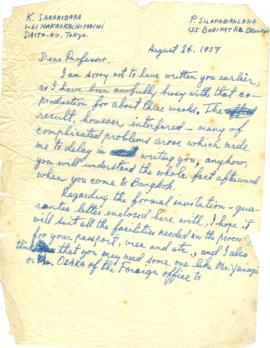 K. SAKAKIBARA
1-61 NAKAOKACHIMACHI
DAITO-KU, TOKYO.
P. SILAPABANLENG
135 BORIPAT RD. BANGKOK
August 26, 1957
Dear Professor,
I am sorry not to have written you earlier,
as I have been awfully busy with that co-
production for about three weeks. The
result, however, interfered – many of
complicated problems arose which made
me to delay in writing you, anyhow,
you will understand the whole fact afterward
when you come to Bangkok.
Regarding the formal invitation - gua-
rantee letter enclosed here with, I hope it
will suit all the facilities needed in the process
for your passport, visa and etc., and I also
think that you may need some one like Mr. Yanagi
or ODAKA of the Foreign office to